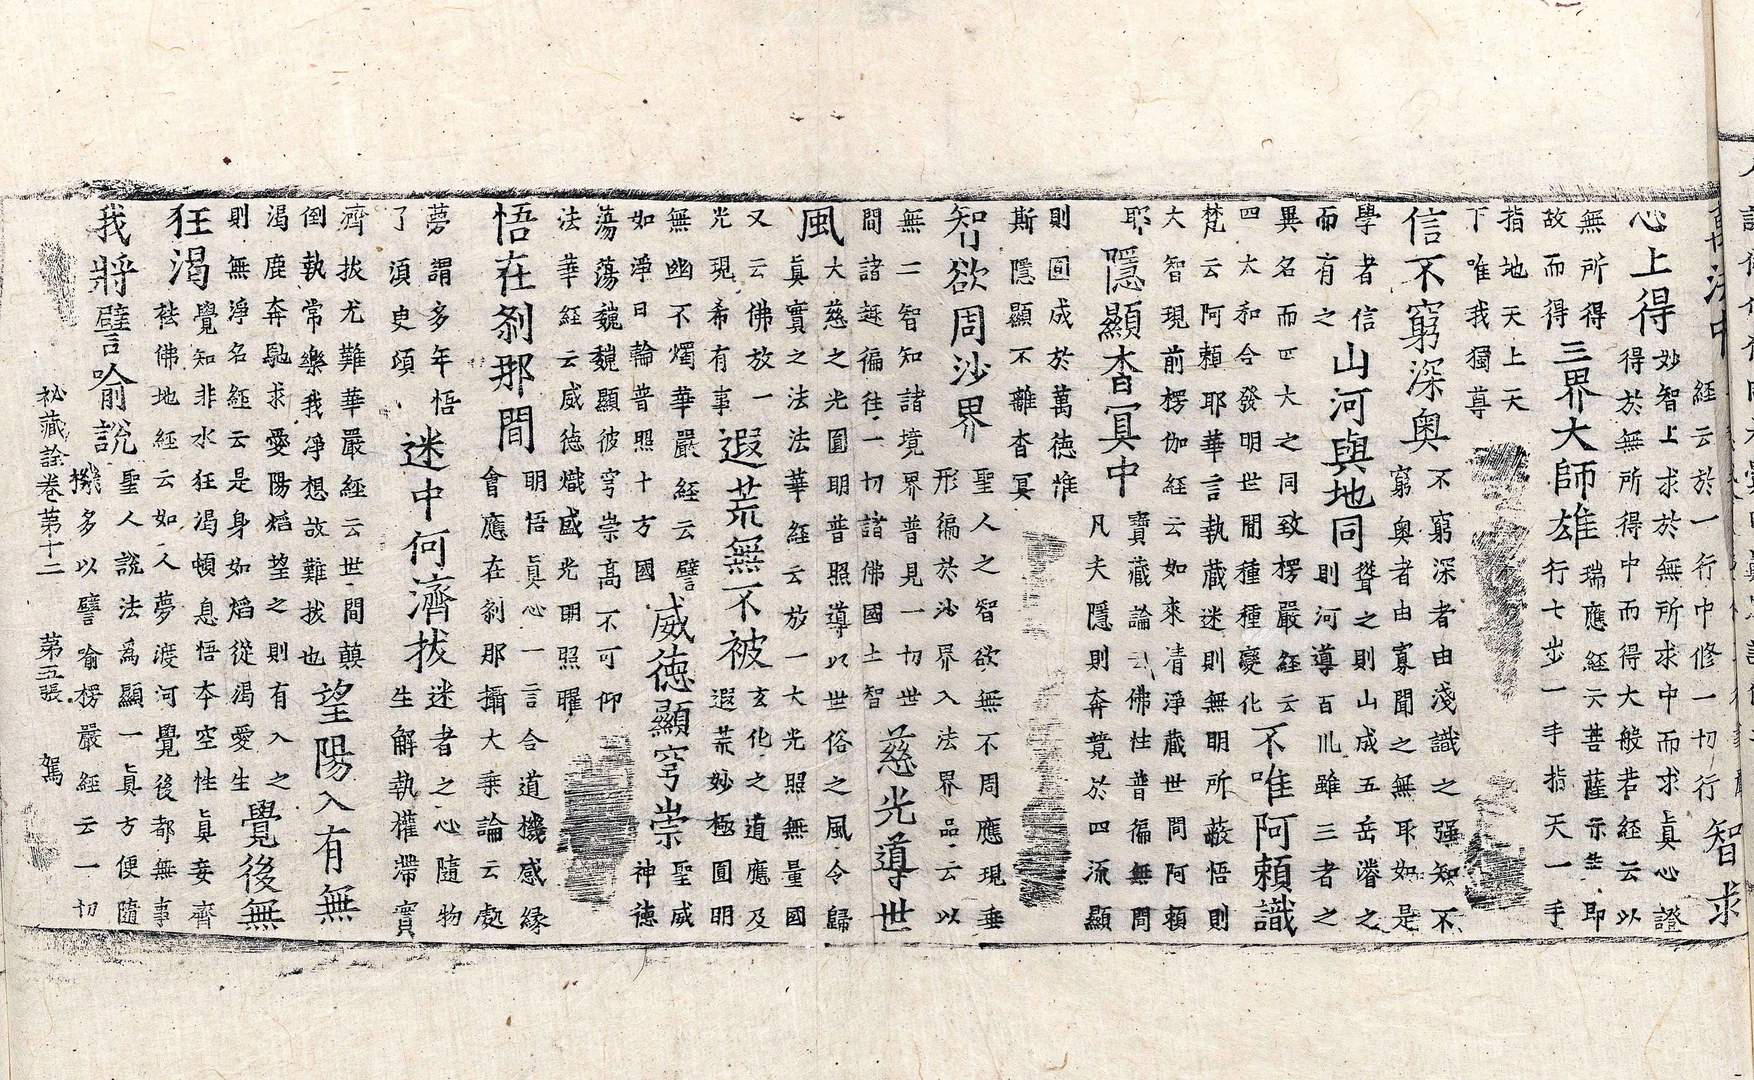 萬法中
經云於一行中修一切行
智求
心上得
妙智上求於無所求中而求眞心證
得於無所得中而得大般若經云以
無所得
故而得
三界大師雄
瑞應經云菩薩示生即
行七步一手指天一手
指地天上天
下唯我獨尊
信不窮深奧
不窮深者由淺識之强知不
窮奧者由寡聞之無耶如是
學者信
而有之
山河與地同
聳之則山成五岳濬之
則河導百川雖三者之
異名而四大之同致楞嚴經云
四大和合發明世間種種變化
不唯阿賴識
梵云阿賴耶華言執藏迷則無明所蔽悟則
大智現前楞伽經云如來清淨藏世間阿賴
耶
隱顯杳冥中
寶藏論云佛性普徧無問
凡夫隱則奔競於四流顯
則圓成於萬德惟
斯隱顯不離杳冥
智欲周沙界
聖人之智欲無不周應現垂
形徧於沙界入法界品云以
無二智知諸境界普見一切世
間諸趣徧往一切諸佛國土智
慈光導世
風
大慈之光圓明普照導以世俗之風令歸
眞實之法法華經云放一大光照無量國
又云佛放一
光現希有事
遐荒無不被
玄化之道應及
遐荒妙極圓明
無幽不燭華嚴經云譬
如淨日輪普照十方國
威德顯穹崇
聖威
神德
蕩蕩巍巍顯彼穹崇高不可仰
法華經云威德熾盛光明照曜
悟在剎那間
明悟眞心一言合道機感緣
會應在剎那攝大乘論云處
夢謂多年悟
了湏臾頃
迷中何濟拔
迷者之心隨物
生解執權滯實
濟拔尤難華嚴經云世間顛
倒執常樂我淨想故難拔也
望陽入有無
渴鹿奔馳求愛陽焰望之則有入之
則無淨名經云是身如焰從渴愛生
覺後無
狂渴
覺知非水狂渴頓息悟本空性眞妄齊
袪佛地經云如人夢渡河覺後都無事
我將譬喻說
聖人說法爲顯一眞方便隨
機多以譬喻楞嚴經云一切
祕藏詮卷第十二 第五張 駕